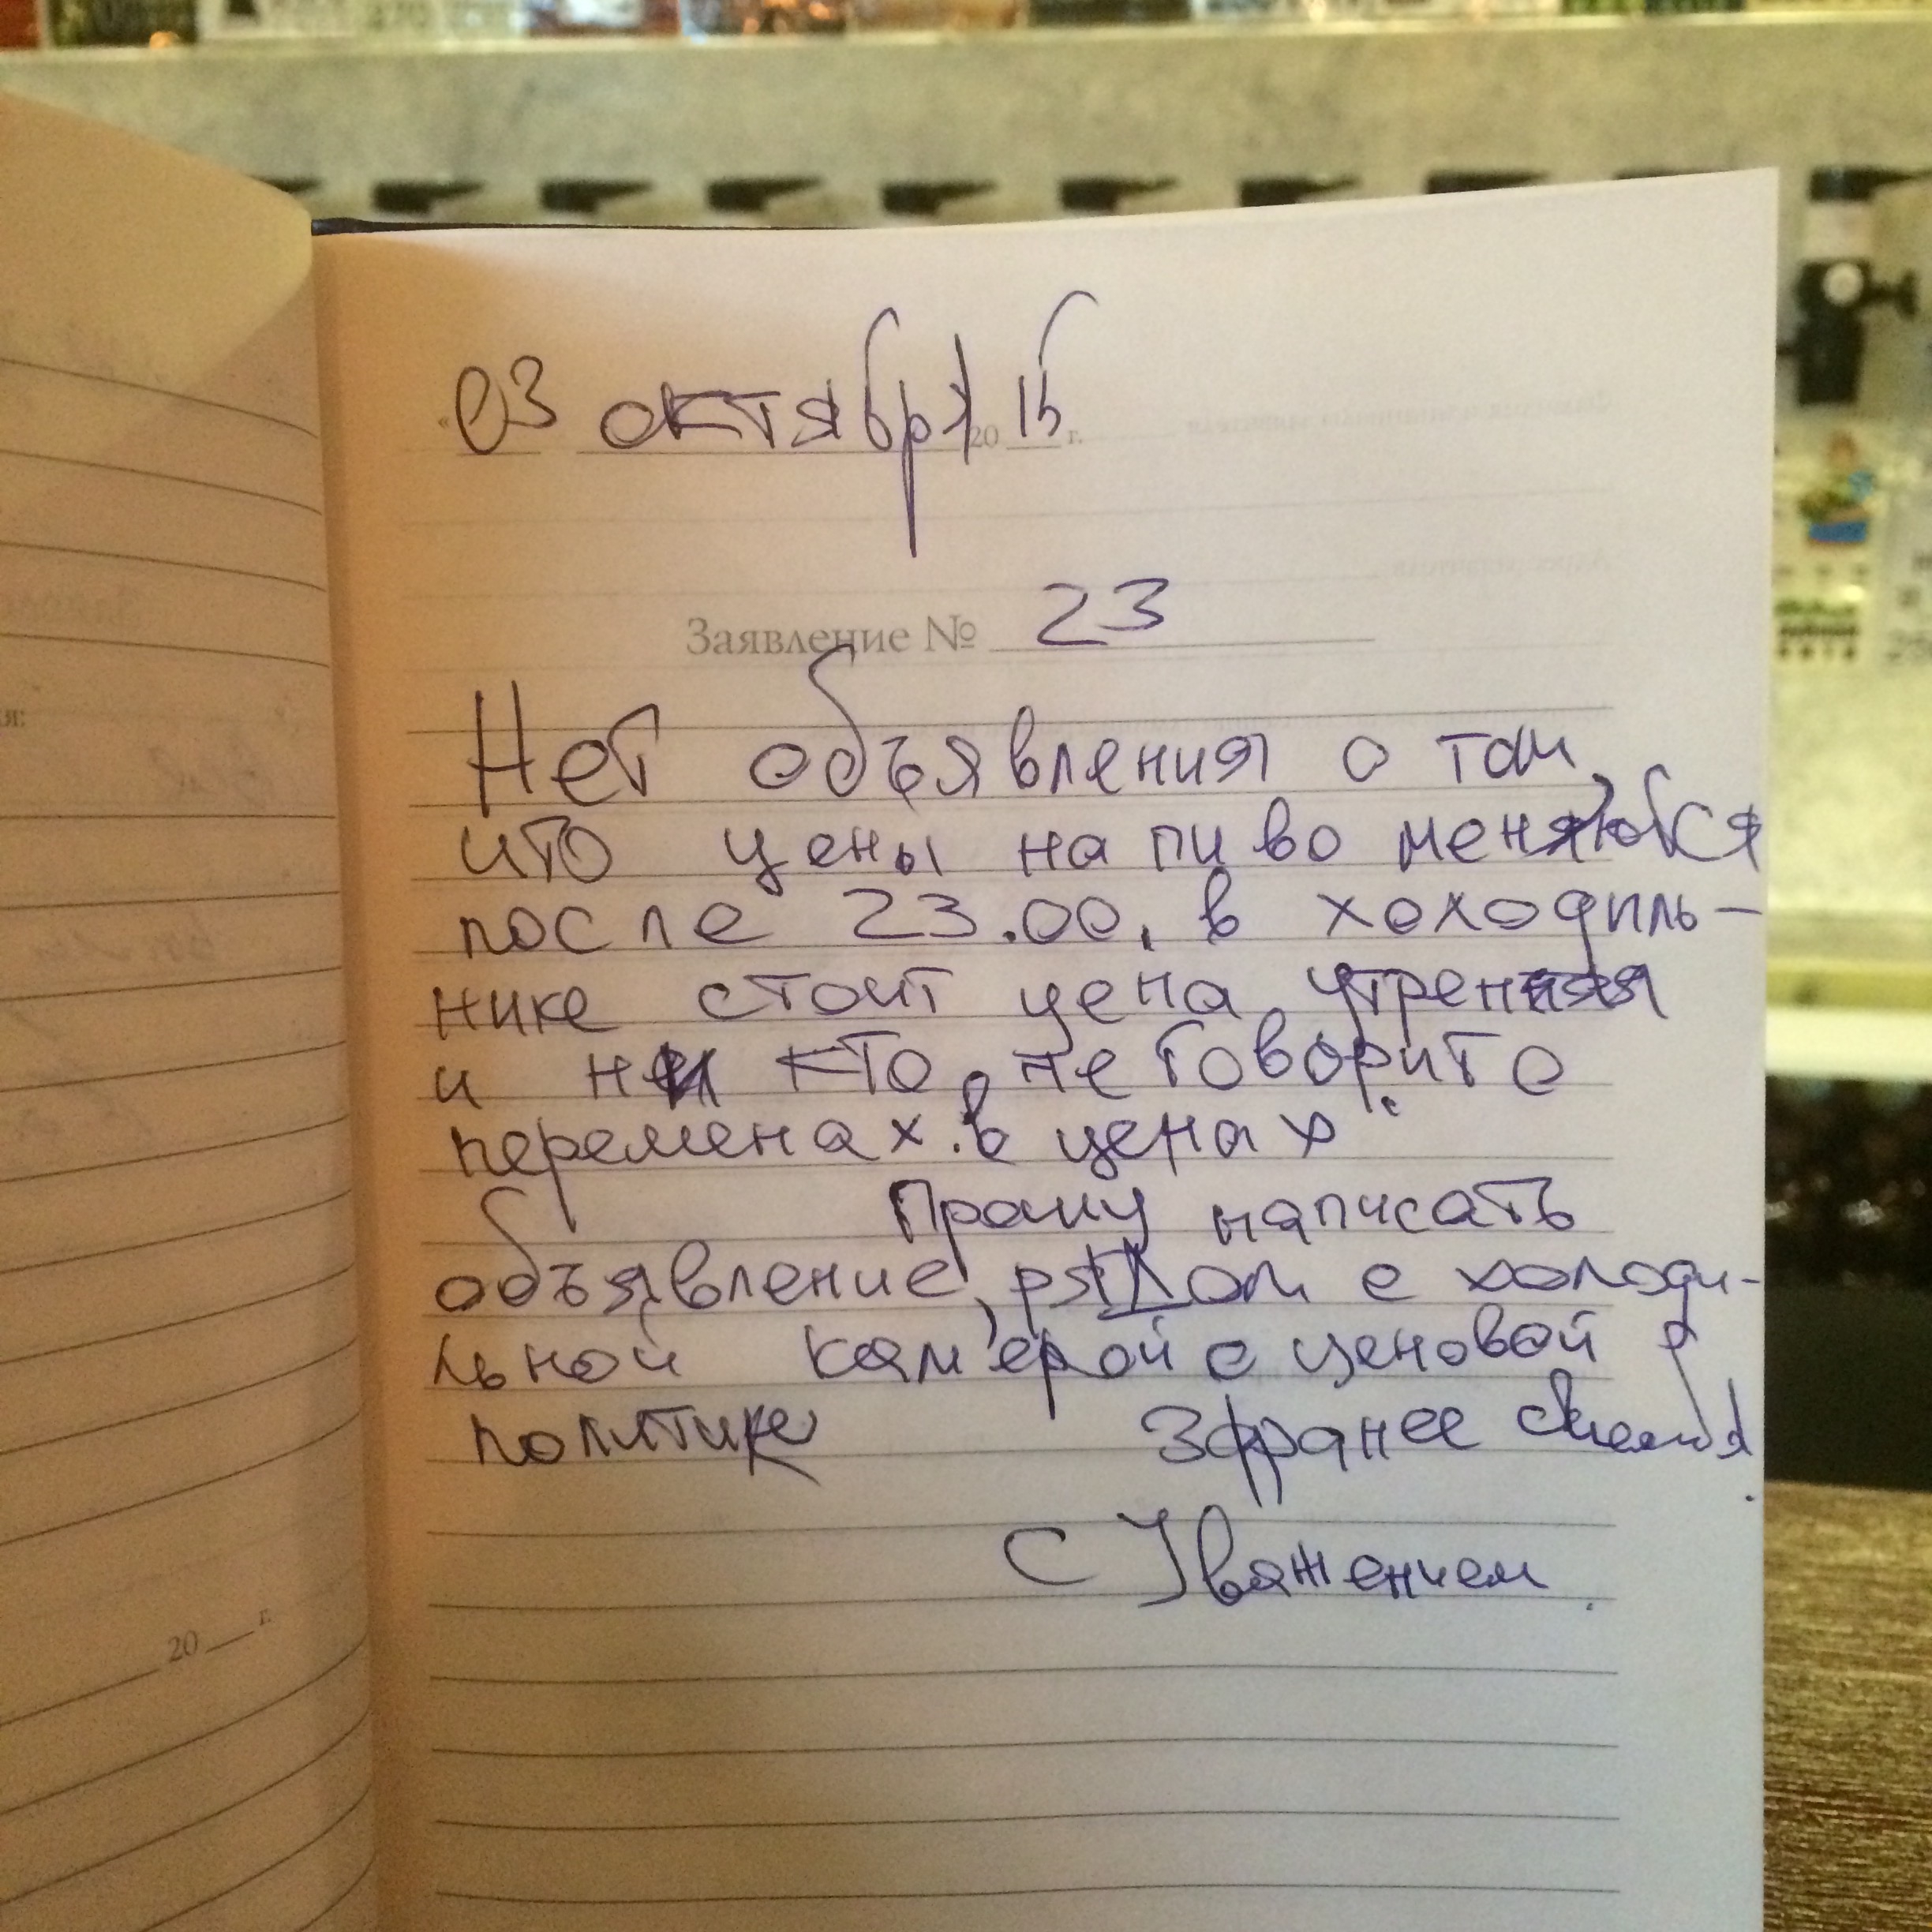 « 03 октября 20 16 г.
Заявление № 23
Нет объявления о том,
что цены на пиво меняются
после 23.00, в холодиль-
нике стоит цена утренняя
и ни кто не говорит о
переменах в ценах.
Прошу написать
объявление, рядом с холоди-
льной камерой о ценовой
политике Заранее
С Уважением.
20 г.